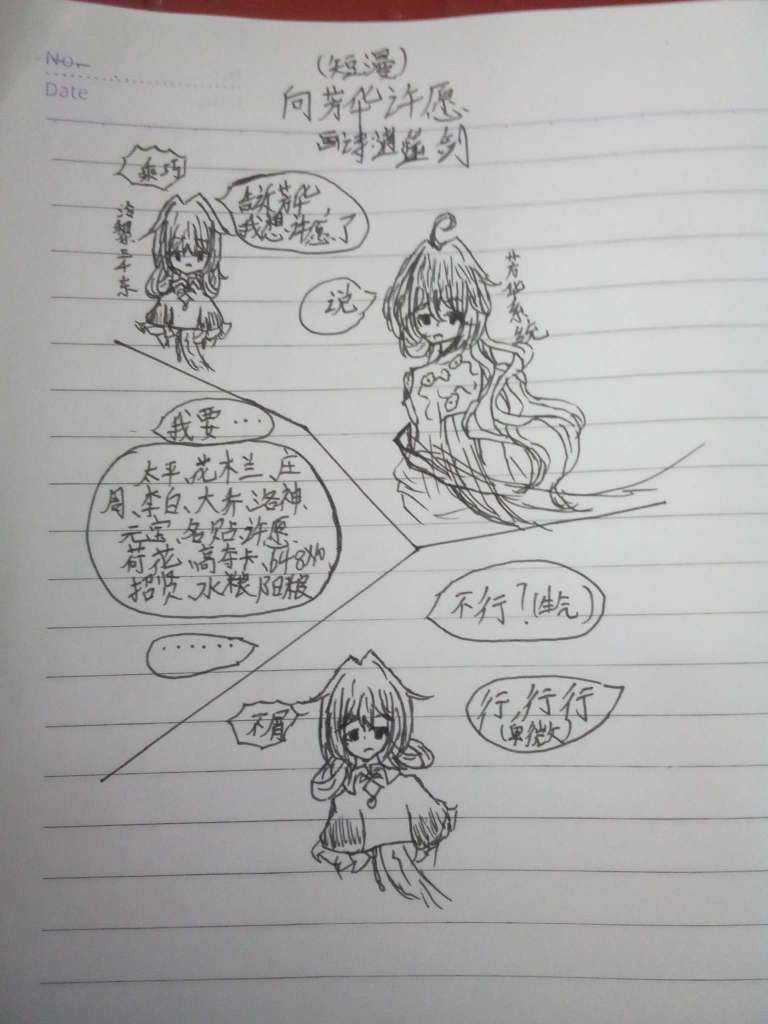 No.
Date
(短漫)
向芳华许愿
画诗逍遥剑
乖巧
告诉芳华
我想许愿了
说
芳华系统
我要…
太平、花木兰、庄
周、李白、大乔、洛神、
元宝、各贴、许愿、
荷花、高夺卡、648x10、
招贤、水粮、阳粮
……
不行?(生气)
不屑
行,行行
(卑微)